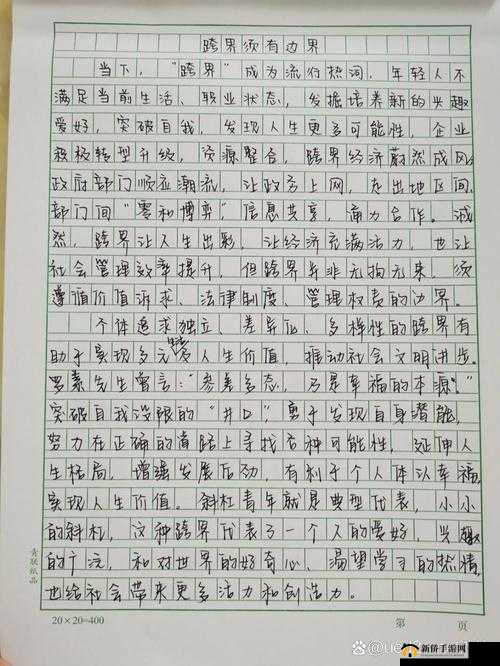 跨界须有边界
当下，“跨界”成为流行热词，年轻人不
满足当前生活、职业状态，发掘培养新的兴趣
爱好，突破自我，发现人生更多可能性，企业
积极转型升级，资源整合，跨界经济蔚然成风，
政府部门顺应潮流，让政务上网，走出地区间、
部门间“零和博弈”，信息共享，通力合作。诚
然，跨界让人生出彩，让经济充满活力，也让
社会管理效率提升，但跨界并非无拘无束，须
遵循价值诉求、法律制度、管理权责的边界。
个体追求独立、差异化、多样性的跨界有
助于实现多元人生价值，推动社会文明进步。
罗素先生寓言：“参差多态，乃是幸福的本源。”
突破自我设限的“井口”，勇于发现自身潜能，
努力在正确的道路上寻找各种可能性，延伸人
生格局，增强发展后劲，有利于个人体认幸福，
实现人生价值。斜杠青年就是典型代表，小小
的斜杠，这种跨界代表了一个人的爱好、兴趣
的广泛，和对世界的好奇心、渴望学习的热情，
也给社会带来更多活力和创造力。
青联纸品
20×20=400
第 页
新侨手游网